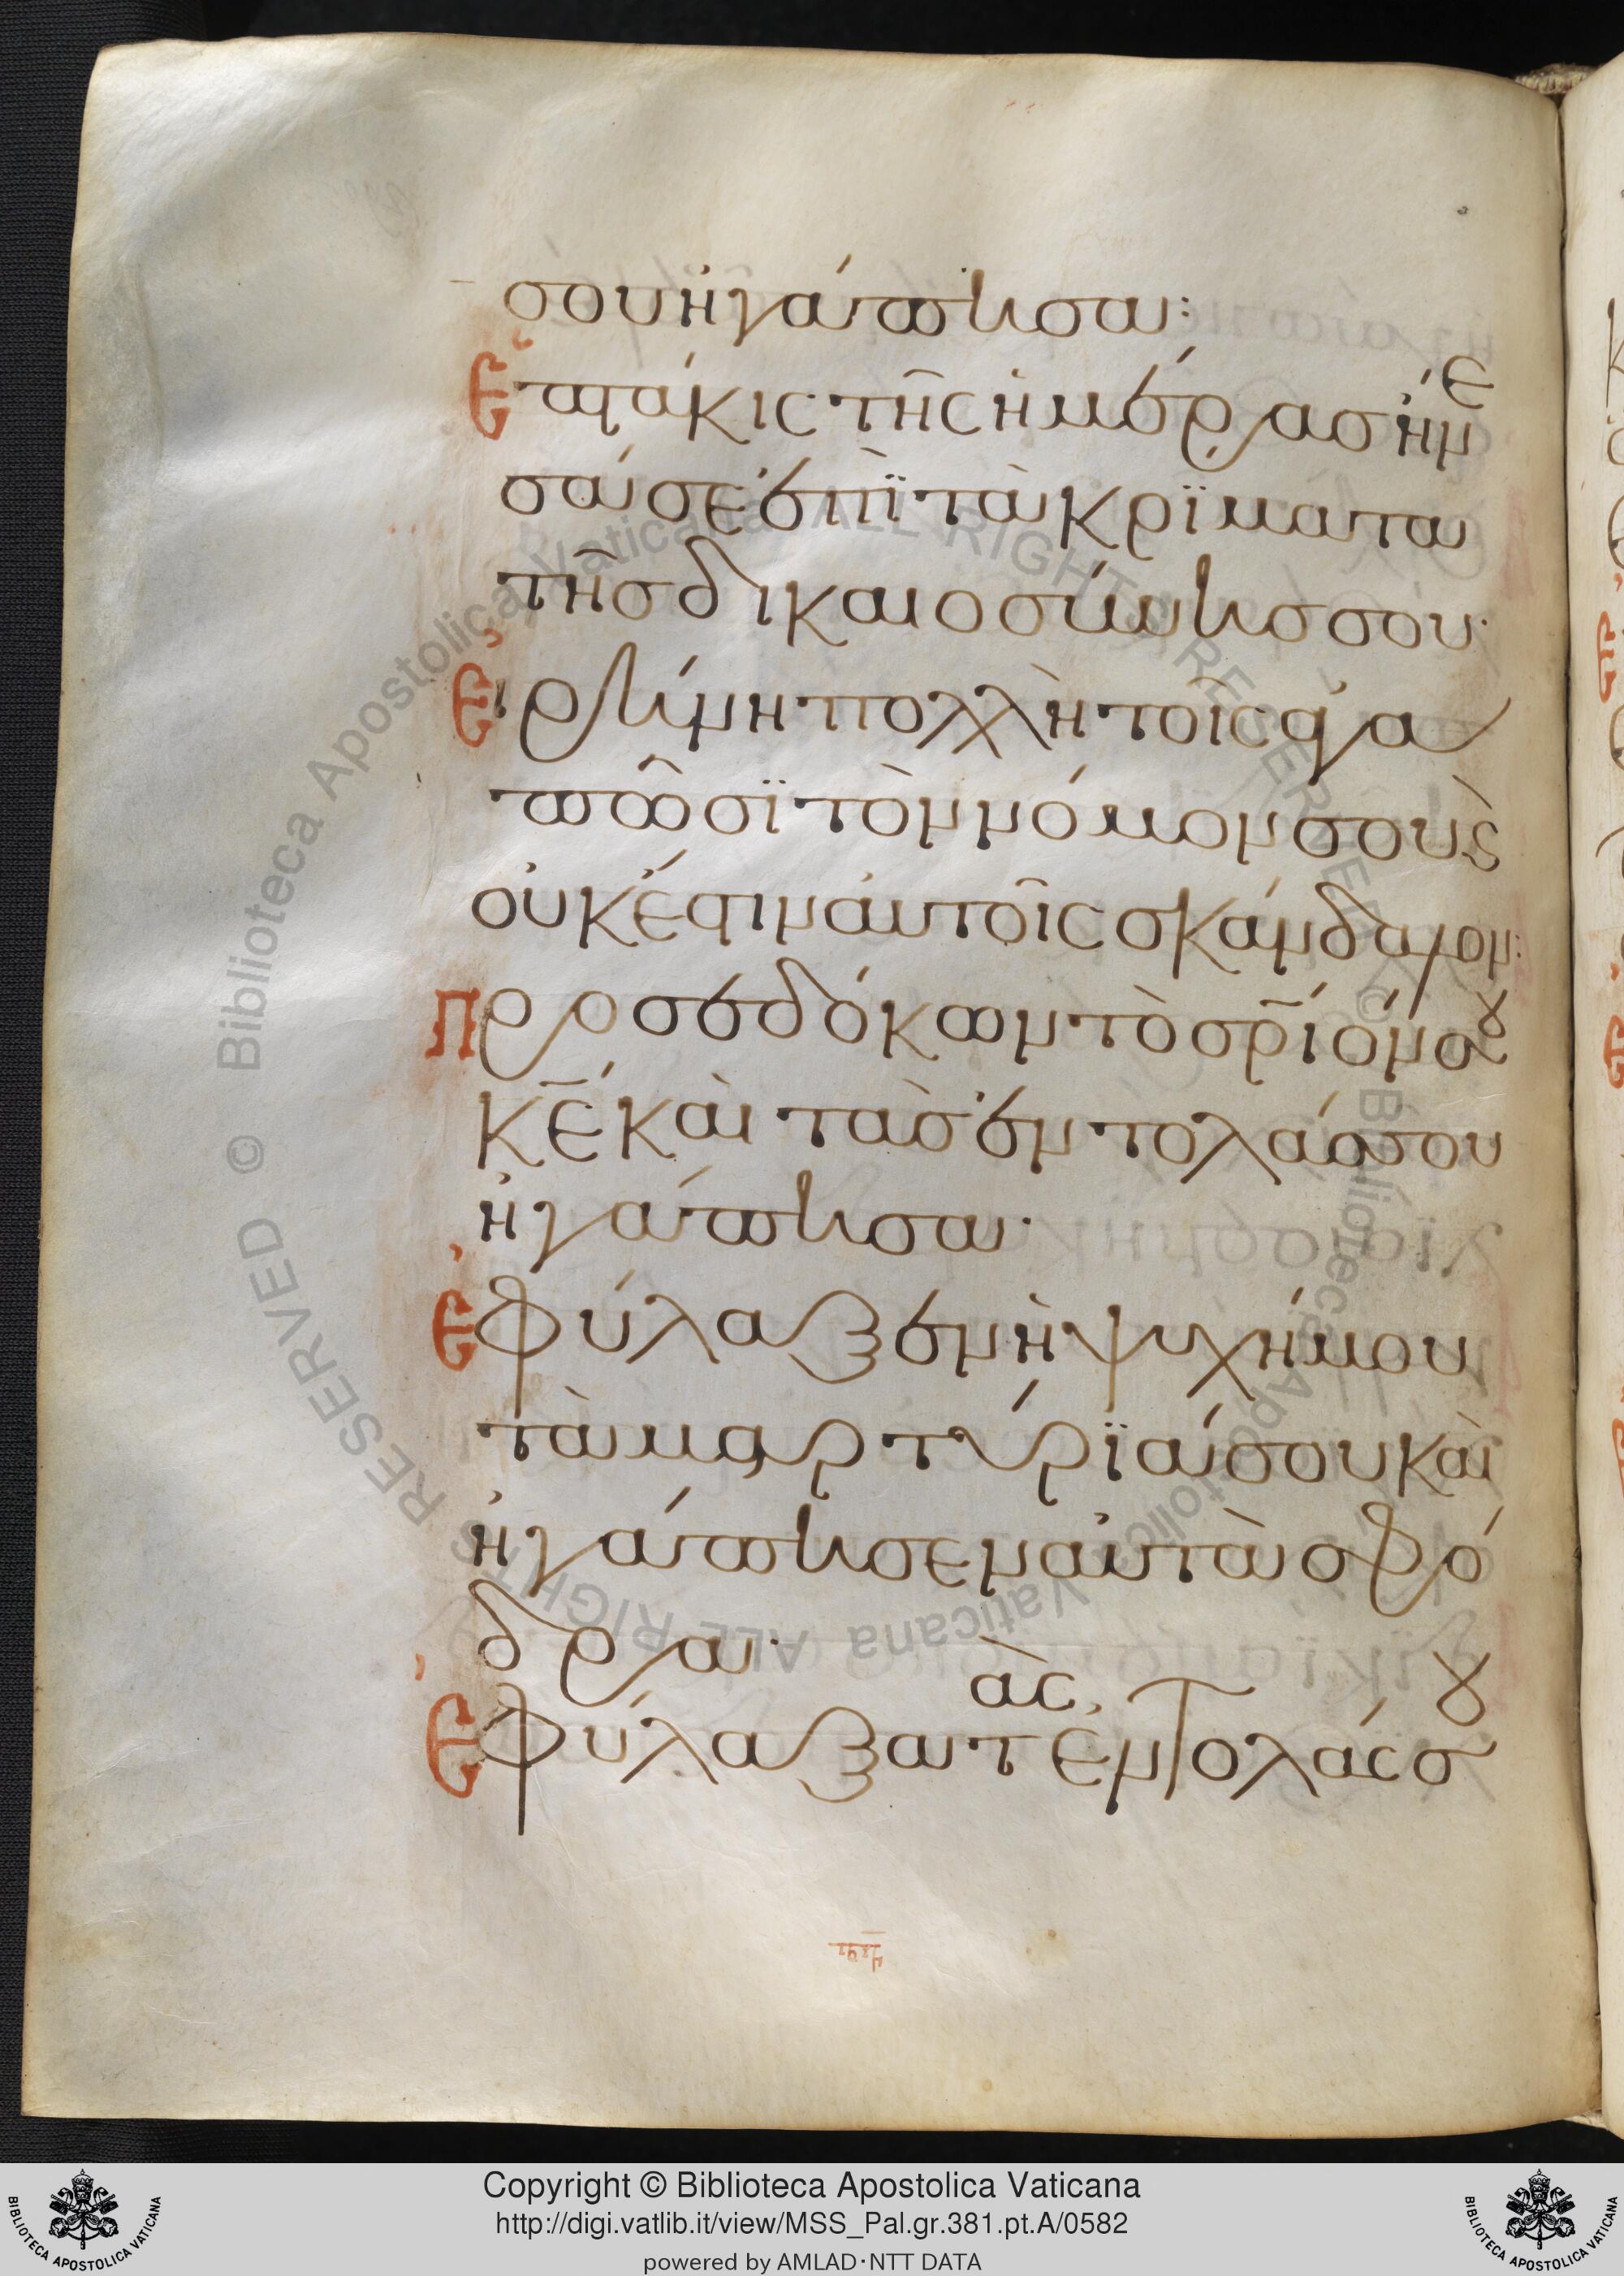 σου ἠγάπησα:
Ἑπτάκις τῆς ἡμέρας ἤνε
σά σε ἐπὶ τὰ κρίματα
τῆς δικαιοσύνης σου·
Εἰρήνη πολλὴ τοῖς ἀγα
πῶσϊ τὸν νόμον σου κ
οὐκ ἔστιν αὐτοῖς σκάνδαλον:
Προσεδόκων τὸ σρ̅ίόν σου
κ̅ε̅ καὶ τὰς ἐντολάς σου
ἠγάπησα·
Ἐφύλαξεν ἡ ψυχή μου
τὰ μαρτύρϊά σου καὶ
ἠγάπησεν αὐτὰ σφό
δρα·
Ἐφύλαξα τὰς ἐντολάς σου
Copyright © Biblioteca Apostolica Vaticana
http://digi.vatlib.it/view/MSS_Pal.gr.381.pt.A/0582
powered by AMLAD·NTT DATA
BIBLIOTECA APOSTOLICA VATICANA
BIBLIOTECA APOSTOLICA VATICANA